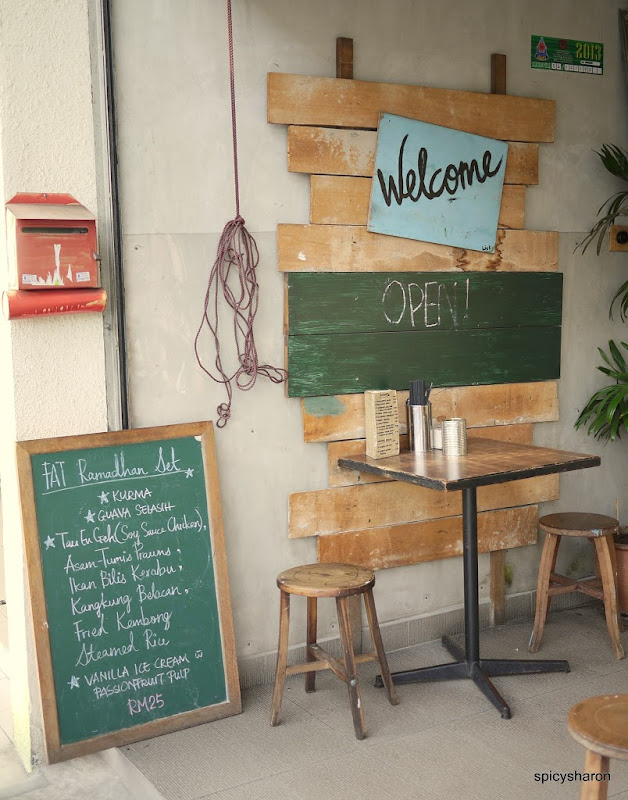 Welcome
OPEN!
2013
FAT Ramadhan Set
KURMA
GUAVA SELASIH
Tau Eu Geh (Soy Sauce Chicken),
Asam Tumis Prawns,
Ikan Bilis Kerabu,
Kangkung Belacan,
Fried Kembong
Steamed Rice
VANILLA ICE CREAM
PASSIONFRUIT PULP
RM25
spicysharon